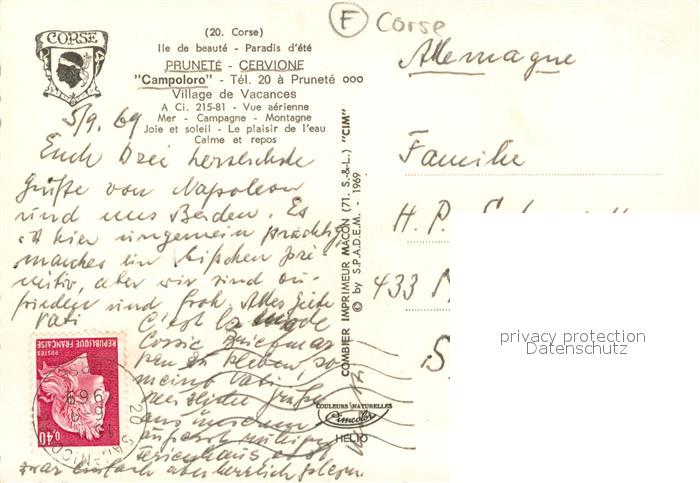 F Corse
CORSE
(20. Corse)
Ile de beauté - Paradis d'été
PRUNETÉ - CERVIONE
"Campoloro" - Tél. 20 à Pruneté ooo
Village de Vacances
A Ci. 215-81 - Vue aérienne
Mer - Campagne - Montagne
Joie et soleil - Le plaisir de l'eau
Calme et repos
5/9. 69
Euch Drei herzlichste
Grüße von Napoleon
und uns Beiden. Es
ist hier ungemein prächtig
manches ein bißchen pri-
mitiv, aber wir sind zu-
frieden und froh. Alles Gute
Vati
C'est la mode
Corse Briefmar
ken zu kleben, so
meint Vati
Herzliche Grüße
aus unserem
Ferienhaus,
zwar einfach aber herrlich gelegen.
REPUBLIQUE FRANÇAISE
POSTES
0,40
COMBIER IMPRIMEUR MACON (71. S.-&-L.) "CIM"
© by S.P.A.D.E.M. - 1969
COULEURS NATURELLES
Cimcolor
HELIO
Allemagne
Familie
H. P.
433
privacy protection
Datenschutz